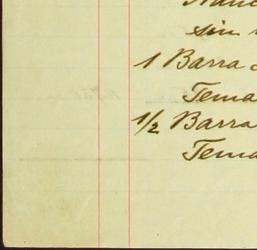 sin
1 Barra
Tema
1/2 Barra
Tema